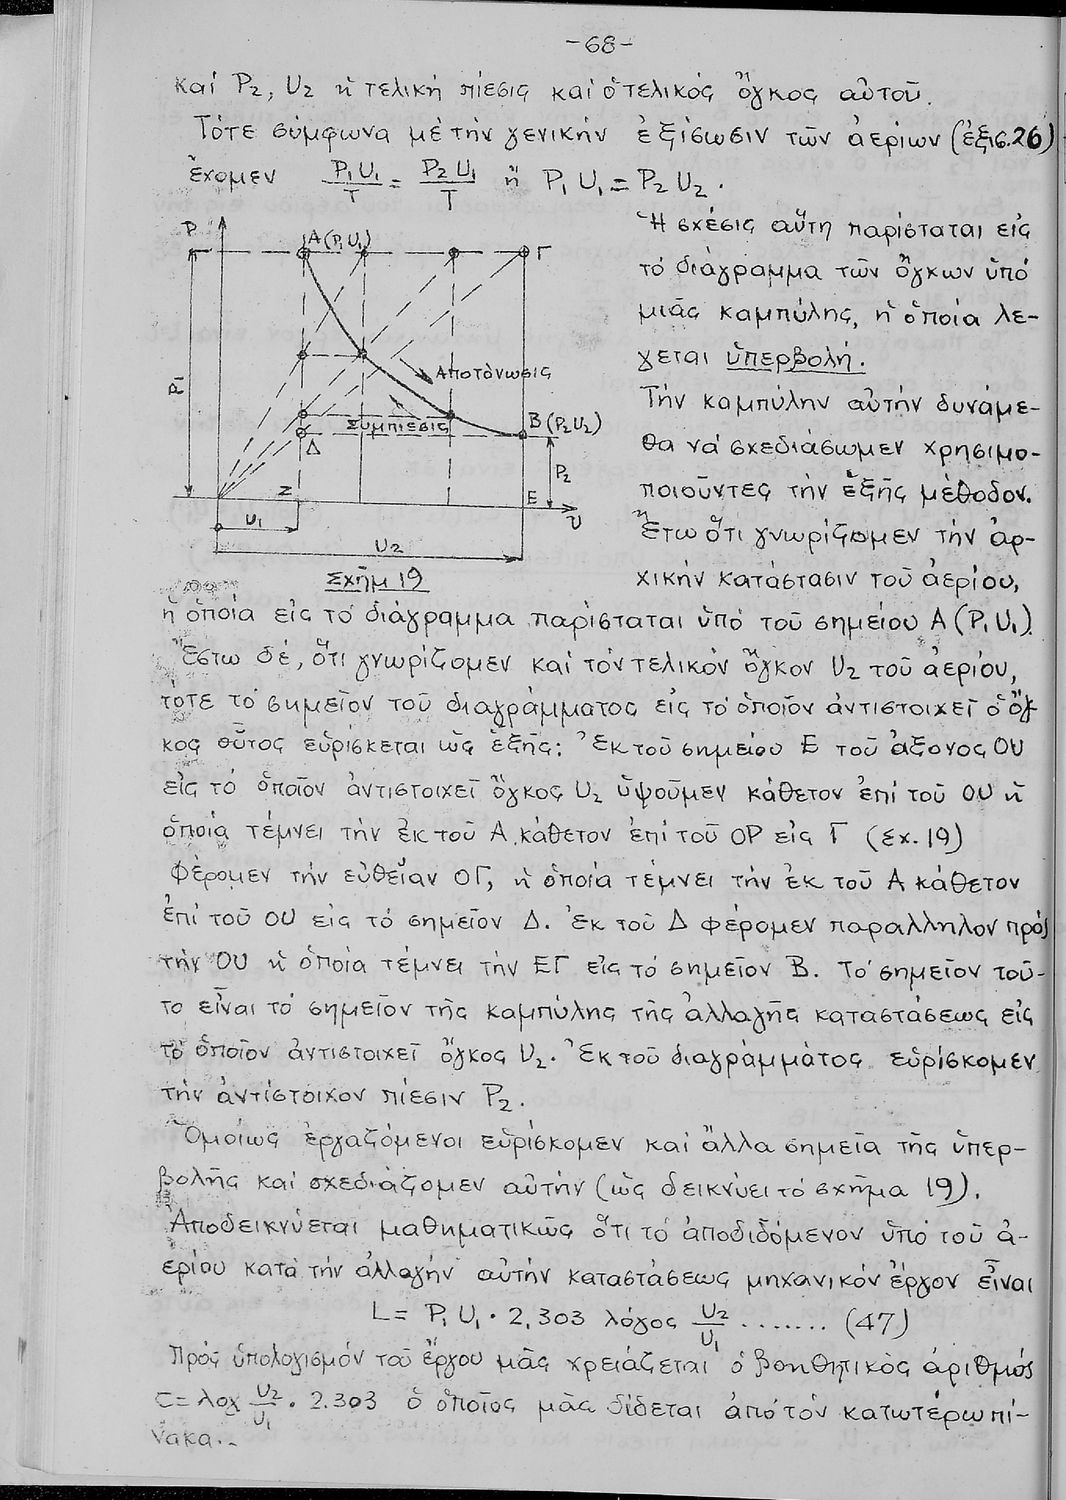 -68-
καί P₂, U₂ ἡ τελική πίεσις καί ὁ τελικός ὄγκος αὐτοῦ.
Τότε σύμφωνα μέ τήν γενικήν ἐξίσωσιν τῶν ἀερίων (ἐξις.26)
ἔχομεν P₁U₁/T = P₂U₁/T ἤ P₁U₁ = P₂U₂.
P
A (P₁U₁)
Γ
P₁
Ἀποτόνωσις
Συμπίεσις
Δ
B (P₂U₂)
P₂
Z
E
U₁
U
U₂
Σχῆμ 19
Ἡ σχέσις αὕτη παρίσταται εἰς
τό διάγραμμα τῶν ὄγκων ὑπό
μιᾶς καμπύλης, ἡ ὁποία λέ-
γεται ὑπερβολή.
Τήν καμπύλην αὐτήν δυνάμε-
θα νά σχεδιάσωμεν χρησιμο-
ποιοῦντες τήν ἑξῆς μέθοδον.
Ἤτω ὅτι γνωρίζομεν τήν ἀρ-
χικήν κατάστασιν τοῦ ἀερίου,
ἡ ὁποία εἰς τό διάγραμμα παρίσταται ὑπό τοῦ σημείου A (P₁U₁).
Ἔστω δέ, ὅτι γνωρίζομεν καί τόν τελικόν ὄγκον U₂ τοῦ ἀερίου,
τότε τό σημεῖον τοῦ διαγράμματος εἰς τό ὁποῖον ἀντιστοιχεῖ ὁ ὄγ
κος οὗτος εὑρίσκεται ὡς ἑξῆς: Ἐκ τοῦ σημείου E τοῦ ἄξονος OU
εἰς τό ὁποῖον ἀντιστοιχεῖ ὄγκος U₂ ὑψοῦμεν κάθετον ἐπί τοῦ OU ἡ
ὁποία τέμνει τήν ἐκ τοῦ A κάθετον ἐπί τοῦ OP εἰς Γ (ΣΧ. 19)
Φέρομεν τήν εὐθεῖαν OΓ, ἡ ὁποία τέμνει τήν ἐκ τοῦ A κάθετον
ἐπί τοῦ OU εἰς τό σημεῖον Δ. Ἐκ τοῦ Δ φέρομεν παράλληλον πρός
τήν OU ἡ ὁποία τέμνει τήν EΓ εἰς τό σημεῖον B. Τό σημεῖον τοῦ-
το εἶναι τό σημεῖον τῆς καμπύλης τῆς ἀλλαγῆς καταστάσεως εἰς
τό ὁποῖον ἀντιστοιχεῖ ὄγκος U₂. Ἐκ τοῦ διαγράμματος εὑρίσκομεν
τήν ἀντίστοιχον πίεσιν P₂.
Ὁμοίως ἐργαζόμενοι εὑρίσκομεν καί ἄλλα σημεῖα τῆς ὑπερ-
βολῆς καί σχεδιάζομεν αὐτήν (ὡς δεικνύει τό σχῆμα 19).
Ἀποδεικνύεται μαθηματικῶς ὅτι τό ἀποδιδόμενον ὑπό τοῦ ἀ-
ερίου κατά τήν ἀλλαγήν αὐτήν καταστάσεως μηχανικόν ἔργον εἶναι
L = P₁U₁ · 2,303 λόγος U₂/U₁ ....... (47)
Πρός ὑπολογισμόν τοῦ ἔργου μᾶς χρειάζεται ὁ βοηθητικός ἀριθμός
C = λογ U₂/U₁ · 2.303 ὁ ὁποῖος μᾶς δίδεται ἀπό τόν κατωτέρω πί-
νακα..